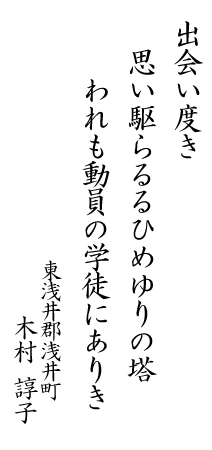 出会い度き
思い駆らるるひめゆりの塔
われも動員の学徒にありき
東浅井郡浅井町
木村 諄子